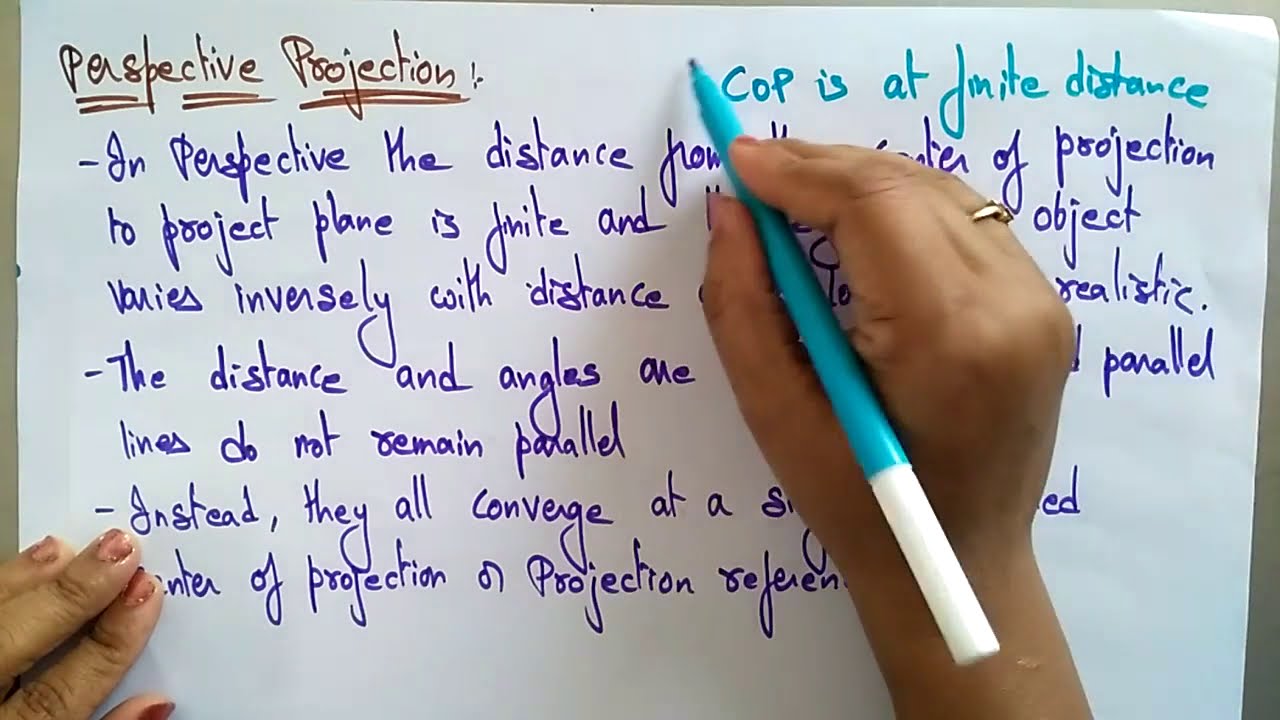 Perspective Projection :-
COP is at finite distance
- In Perspective the distance from the center of projection
to project plane is finite and the object
varies inversely with distance realistic.
- The distance and angles are parallel
lines do not remain parallel
- Instead, they all converge at a
center of projection or Projection